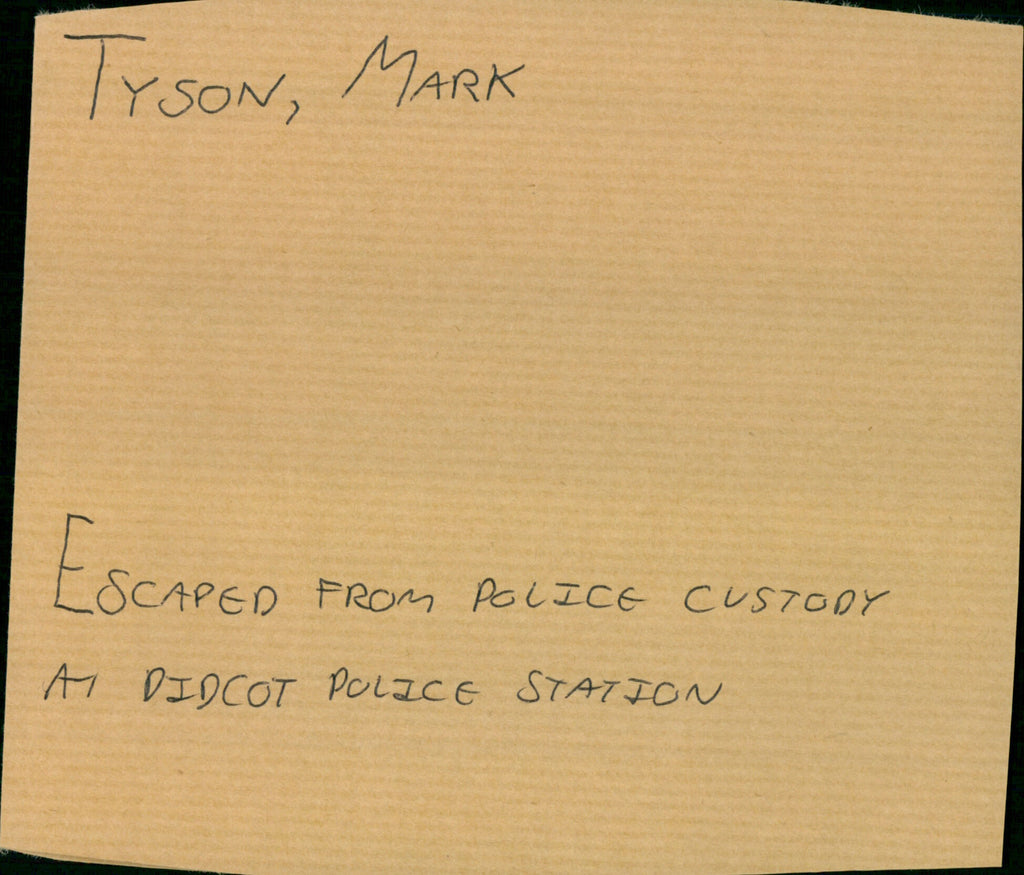 Tyson, Mark
Escaped from police custody
at Didcot Police Station